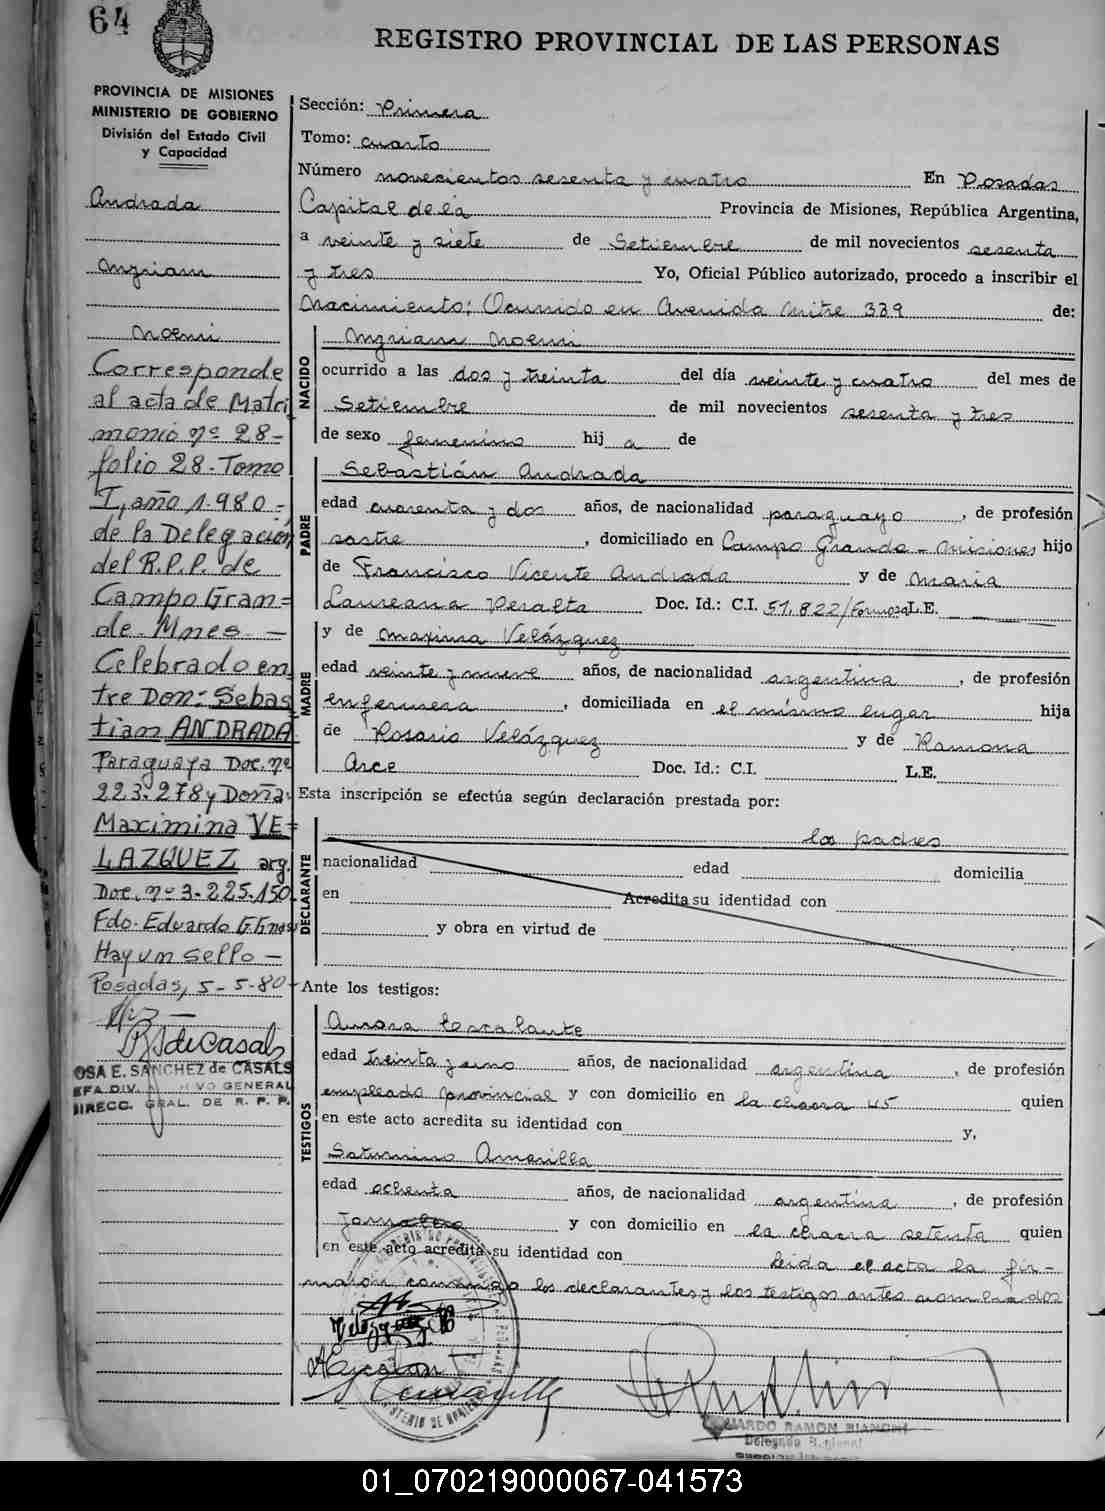 64
REGISTRO PROVINCIAL DE LAS PERSONAS
PROVINCIA DE MISIONES
MINISTERIO DE GOBIERNO
División del Estado Civil
y Capacidad
Andrada
Myriam
Noemi
Corresponde
al acta de Matri
monio nº 28-
folio 28-Tomo
I, año 1.980-
de la Delegación
del R.P.P. de
Campo Gran=
de-Mnes-
Celebrado en
tre Don: Sebas
tian ANDRADA
Paraguaya Doc. nº
223.278 y Doña
Maximina VE=
LAZQUEZ arg.
Doc. nº 3.225.150
Fdo. Eduardo
Hay un sello-
Posadas, 5-5-80-
RSdeCasals
OSA E. SANCHEZ de CASALS
EFA DIV. VO GENERAL
DIRECC. GRAL. DE R. P. P.
Sección: Primera
Tomo: cuarto
Número novecientos sesenta y cuatro En Posadas
Capital de la Provincia de Misiones, República Argentina,
a veinte y siete de Setiembre de mil novecientos sesenta
y tres Yo, Oficial Público autorizado, procedo a inscribir el
Nacimiento: Ocurrido en Avenida Mitre 339 de:
NACIDO
Myriam Noemi
ocurrido a las dos y treinta del día veinte y cuatro del mes de
Setiembre de mil novecientos sesenta y tres
de sexo femenino hij a de
PADRE
Sebastián Andrada
edad cuarenta y dos años, de nacionalidad paraguayo, de profesión
sastre, domiciliado en Campo Grande - Misiones hijo
de Francisco Vicente Andrada y de María
Laureana Peralta Doc. Id.: C.I. 51.822/Formosa L.E.
MADRE
y de Maxima Velázquez
edad veinte y nueve años, de nacionalidad argentina, de profesión
enfermera, domiciliada en el mismo lugar hija
de Rosario Velázquez y de Ramona
Arce Doc. Id.: C.I. L.E.
Esta inscripción se efectúa según declaración prestada por:
DECLARANTE
los padres
nacionalidad edad domicilia
en Acredita su identidad con
y obra en virtud de
Ante los testigos:
TESTIGOS
Aurora Escalante
edad treinta y uno años, de nacionalidad argentina, de profesión
empleada provincial y con domicilio en la chacra 45 quien
en este acto acredita su identidad con y,
Saturnino Amarilla
edad ochenta años, de nacionalidad argentina, de profesión
Jornalero y con domicilio en la chacra setenta quien
en este acto acredita su identidad con leida el acta la fir-
maron conmigo los declarantes y los testigos antes nombrados
EDUARDO RAMON BIANCHI
Delegado Regional
01_070219000067-041573